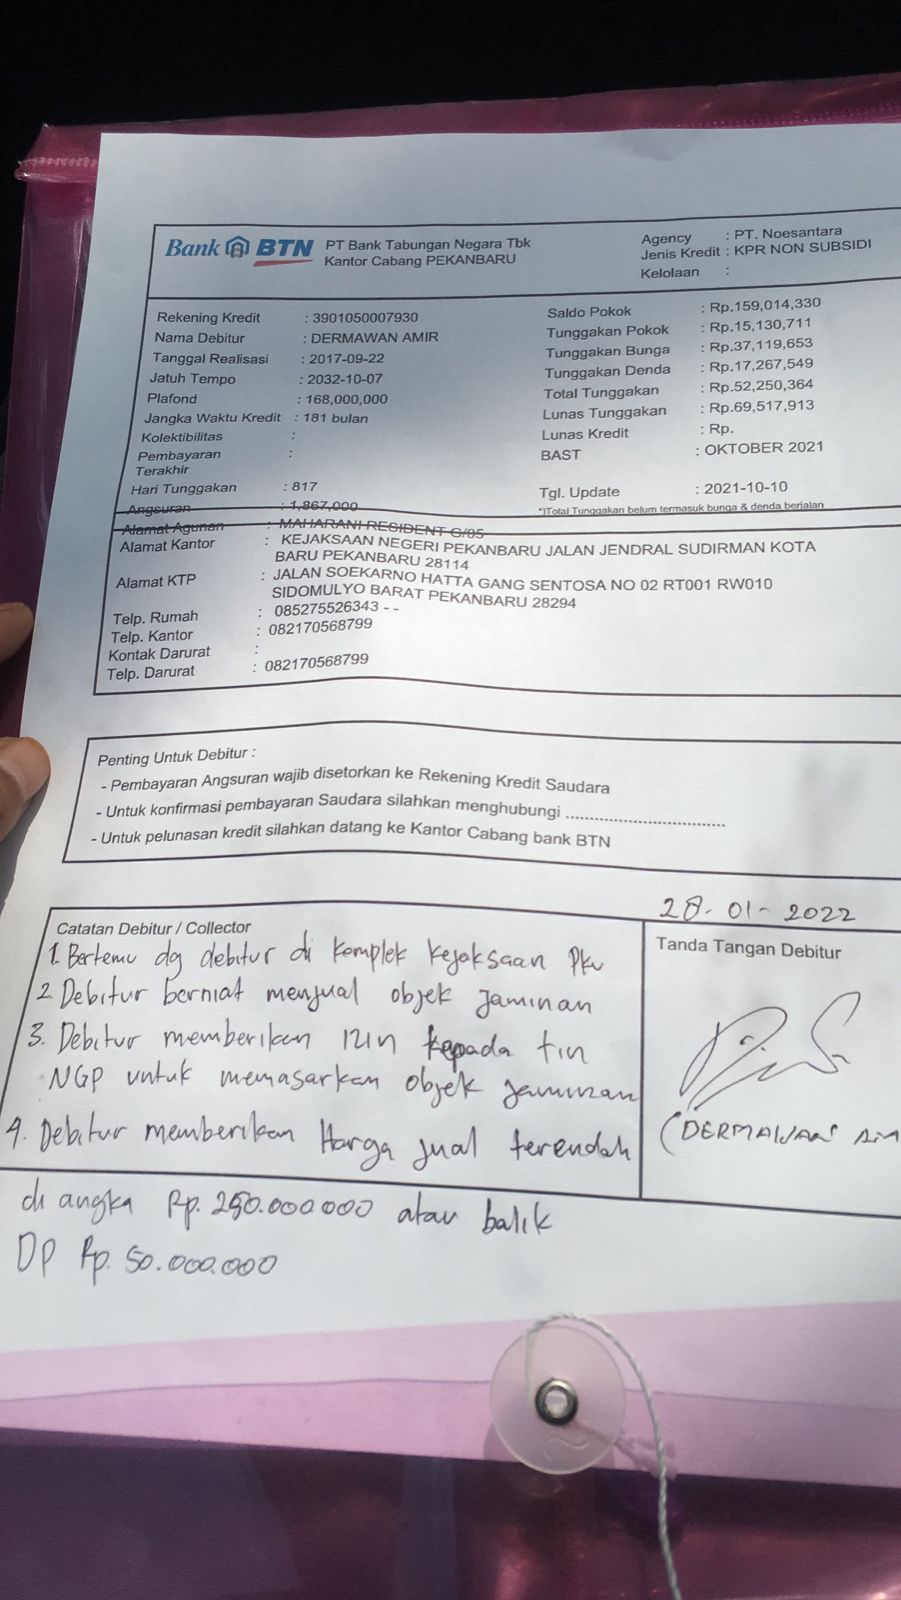 Bank BTN
PT Bank Tabungan Negara Tbk
Kantor Cabang PEKANBARU
Agency : PT. Noesantara
Jenis Kredit : KPR NON SUBSIDI
Kelolaan :
Rekening Kredit : 3901050007930
Nama Debitur : DERMAWAN AMIR
Tanggal Realisasi : 2017-09-22
Jatuh Tempo : 2032-10-07
Plafond : 168,000,000
Jangka Waktu Kredit : 181 bulan
Kolektibilitas :
Pembayaran :
Terakhir
Hari Tunggakan : 817
Angsuran : 1,867,000
Saldo Pokok : Rp.159,014,330
Tunggakan Pokok : Rp.15,130,711
Tunggakan Bunga : Rp.37,119,653
Tunggakan Denda : Rp.17,267,549
Total Tunggakan : Rp.52,250,364
Lunas Tunggakan : Rp.69,517,913
Lunas Kredit : Rp.
BAST : OKTOBER 2021
Tgl. Update : 2021-10-10
*)Total Tunggakan belum termasuk bunga & denda berjalan
Alamat Agunan : MAHARANI RESIDENT G/85
Alamat Kantor : KEJAKSAAN NEGERI PEKANBARU JALAN JENDRAL SUDIRMAN KOTA
BARU PEKANBARU 28114
Alamat KTP : JALAN SOEKARNO HATTA GANG SENTOSA NO 02 RT001 RW010
SIDOMULYO BARAT PEKANBARU 28294
Telp. Rumah : 085275526343 - -
Telp. Kantor : 082170568799
Kontak Darurat :
Telp. Darurat : 082170568799
Penting Untuk Debitur :
- Pembayaran Angsuran wajib disetorkan ke Rekening Kredit Saudara
- Untuk konfirmasi pembayaran Saudara silahkan menghubungi ................................
- Untuk pelunasan kredit silahkan datang ke Kantor Cabang bank BTN
28-01-2022
Catatan Debitur / Collector
Tanda Tangan Debitur
1. Bertemu dg debitur di komplek kejaksaan Pku
2. Debitur berniat menjual objek jaminan
3. Debitur memberikan izin kepada tim
NGP untuk memasarkan objek jaminan
4. Debitur memberikan Harga jual terendah
(DERMAWAN AM
di angka Rp. 250.000000 atau balik
DP Rp. 50.000.000